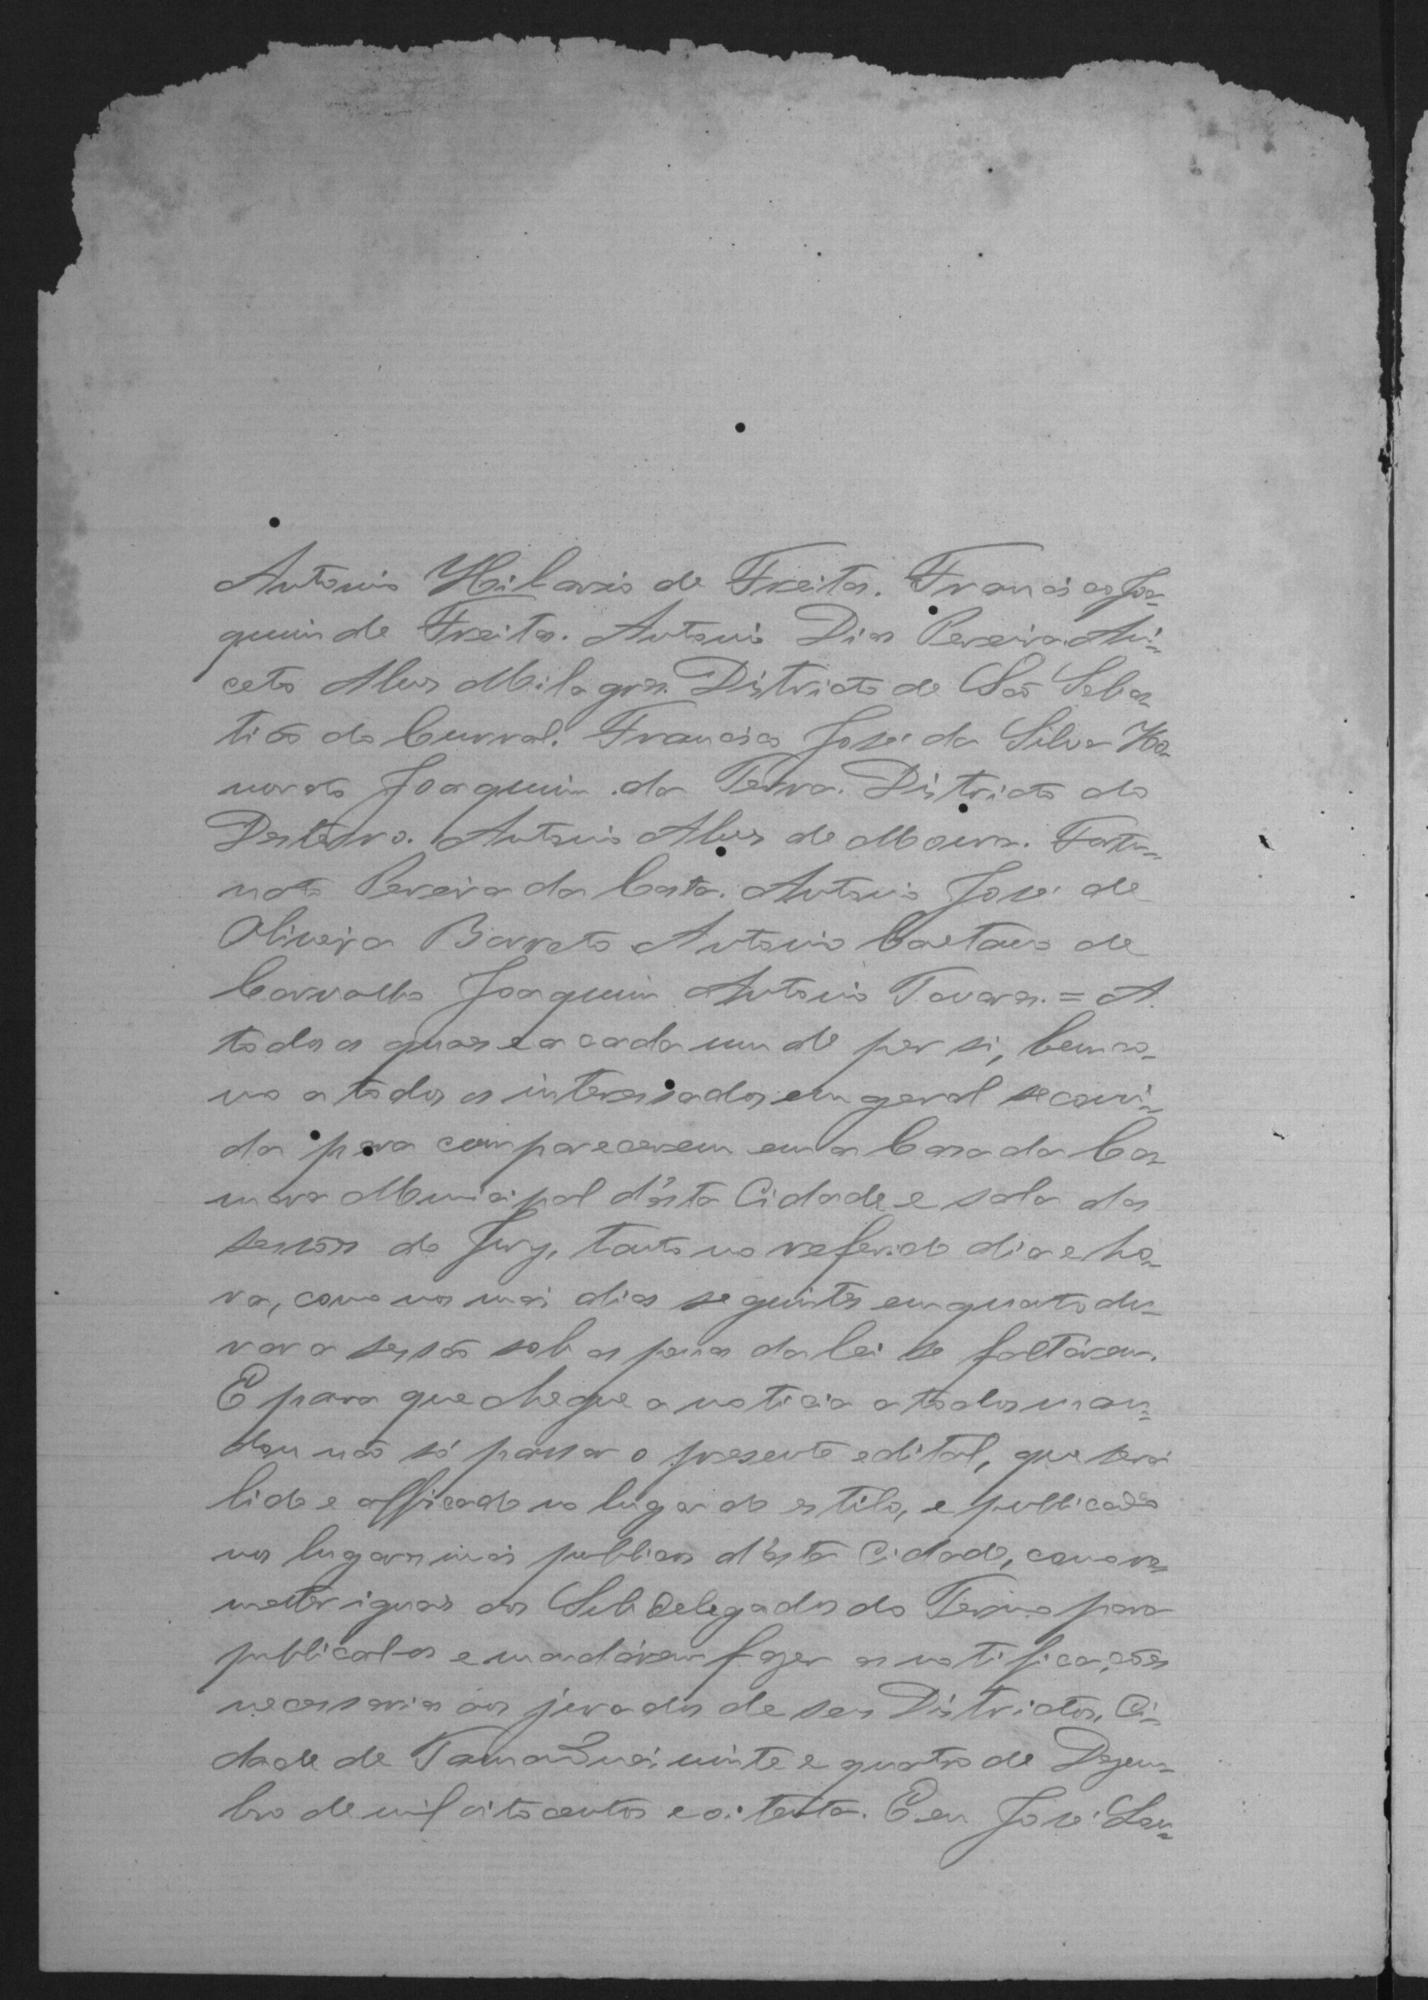 Antonio Hilario de Freitas. Francisco Joa-
quim de Freitas. Antonio Dias Pereira. Ani-
ceto Alves Milagres. Districto de São Sebas-
tião do Curral. Francisco José da Silva Ho-
norato Joaquim da Terra. Districto do
Desterro. Antonio Alves de Moura. Fortu-
nato Pereira da Costa. Antonio José de
Oliveira Barreto Antonio Caetano de
Carvalho Joaquim Antonio Tavares. = A
todos os quaes e a cada um de per si, bem co-
mo a todos os interessados em geral se convi-
da para comparecerem em a Casa da Ca-
mara Municipal d'esta Cidade e sala das
sessões do Jury, tanto no referido dia e ho-
ra, como nos mais dias seguintes emquanto du-
rar a sessão sob as penas da lei se faltarem.
E para que chegue a noticia a todos man-
dou não só passar o presente edital, que será
lido e affixado no lugar do estilo, e publicado
nos lugares mais publicos d'esta Cidade, como re-
metter iguaes aos Subdelegados do Termo para
publical-os e mandárem fazer as notificações
necessarias aos jurados de seus Districtos. Ci-
dade de Tamanduá vinte e quatro de Dezem-
bro de mil oitocentos e oitenta. E eu José Lou-